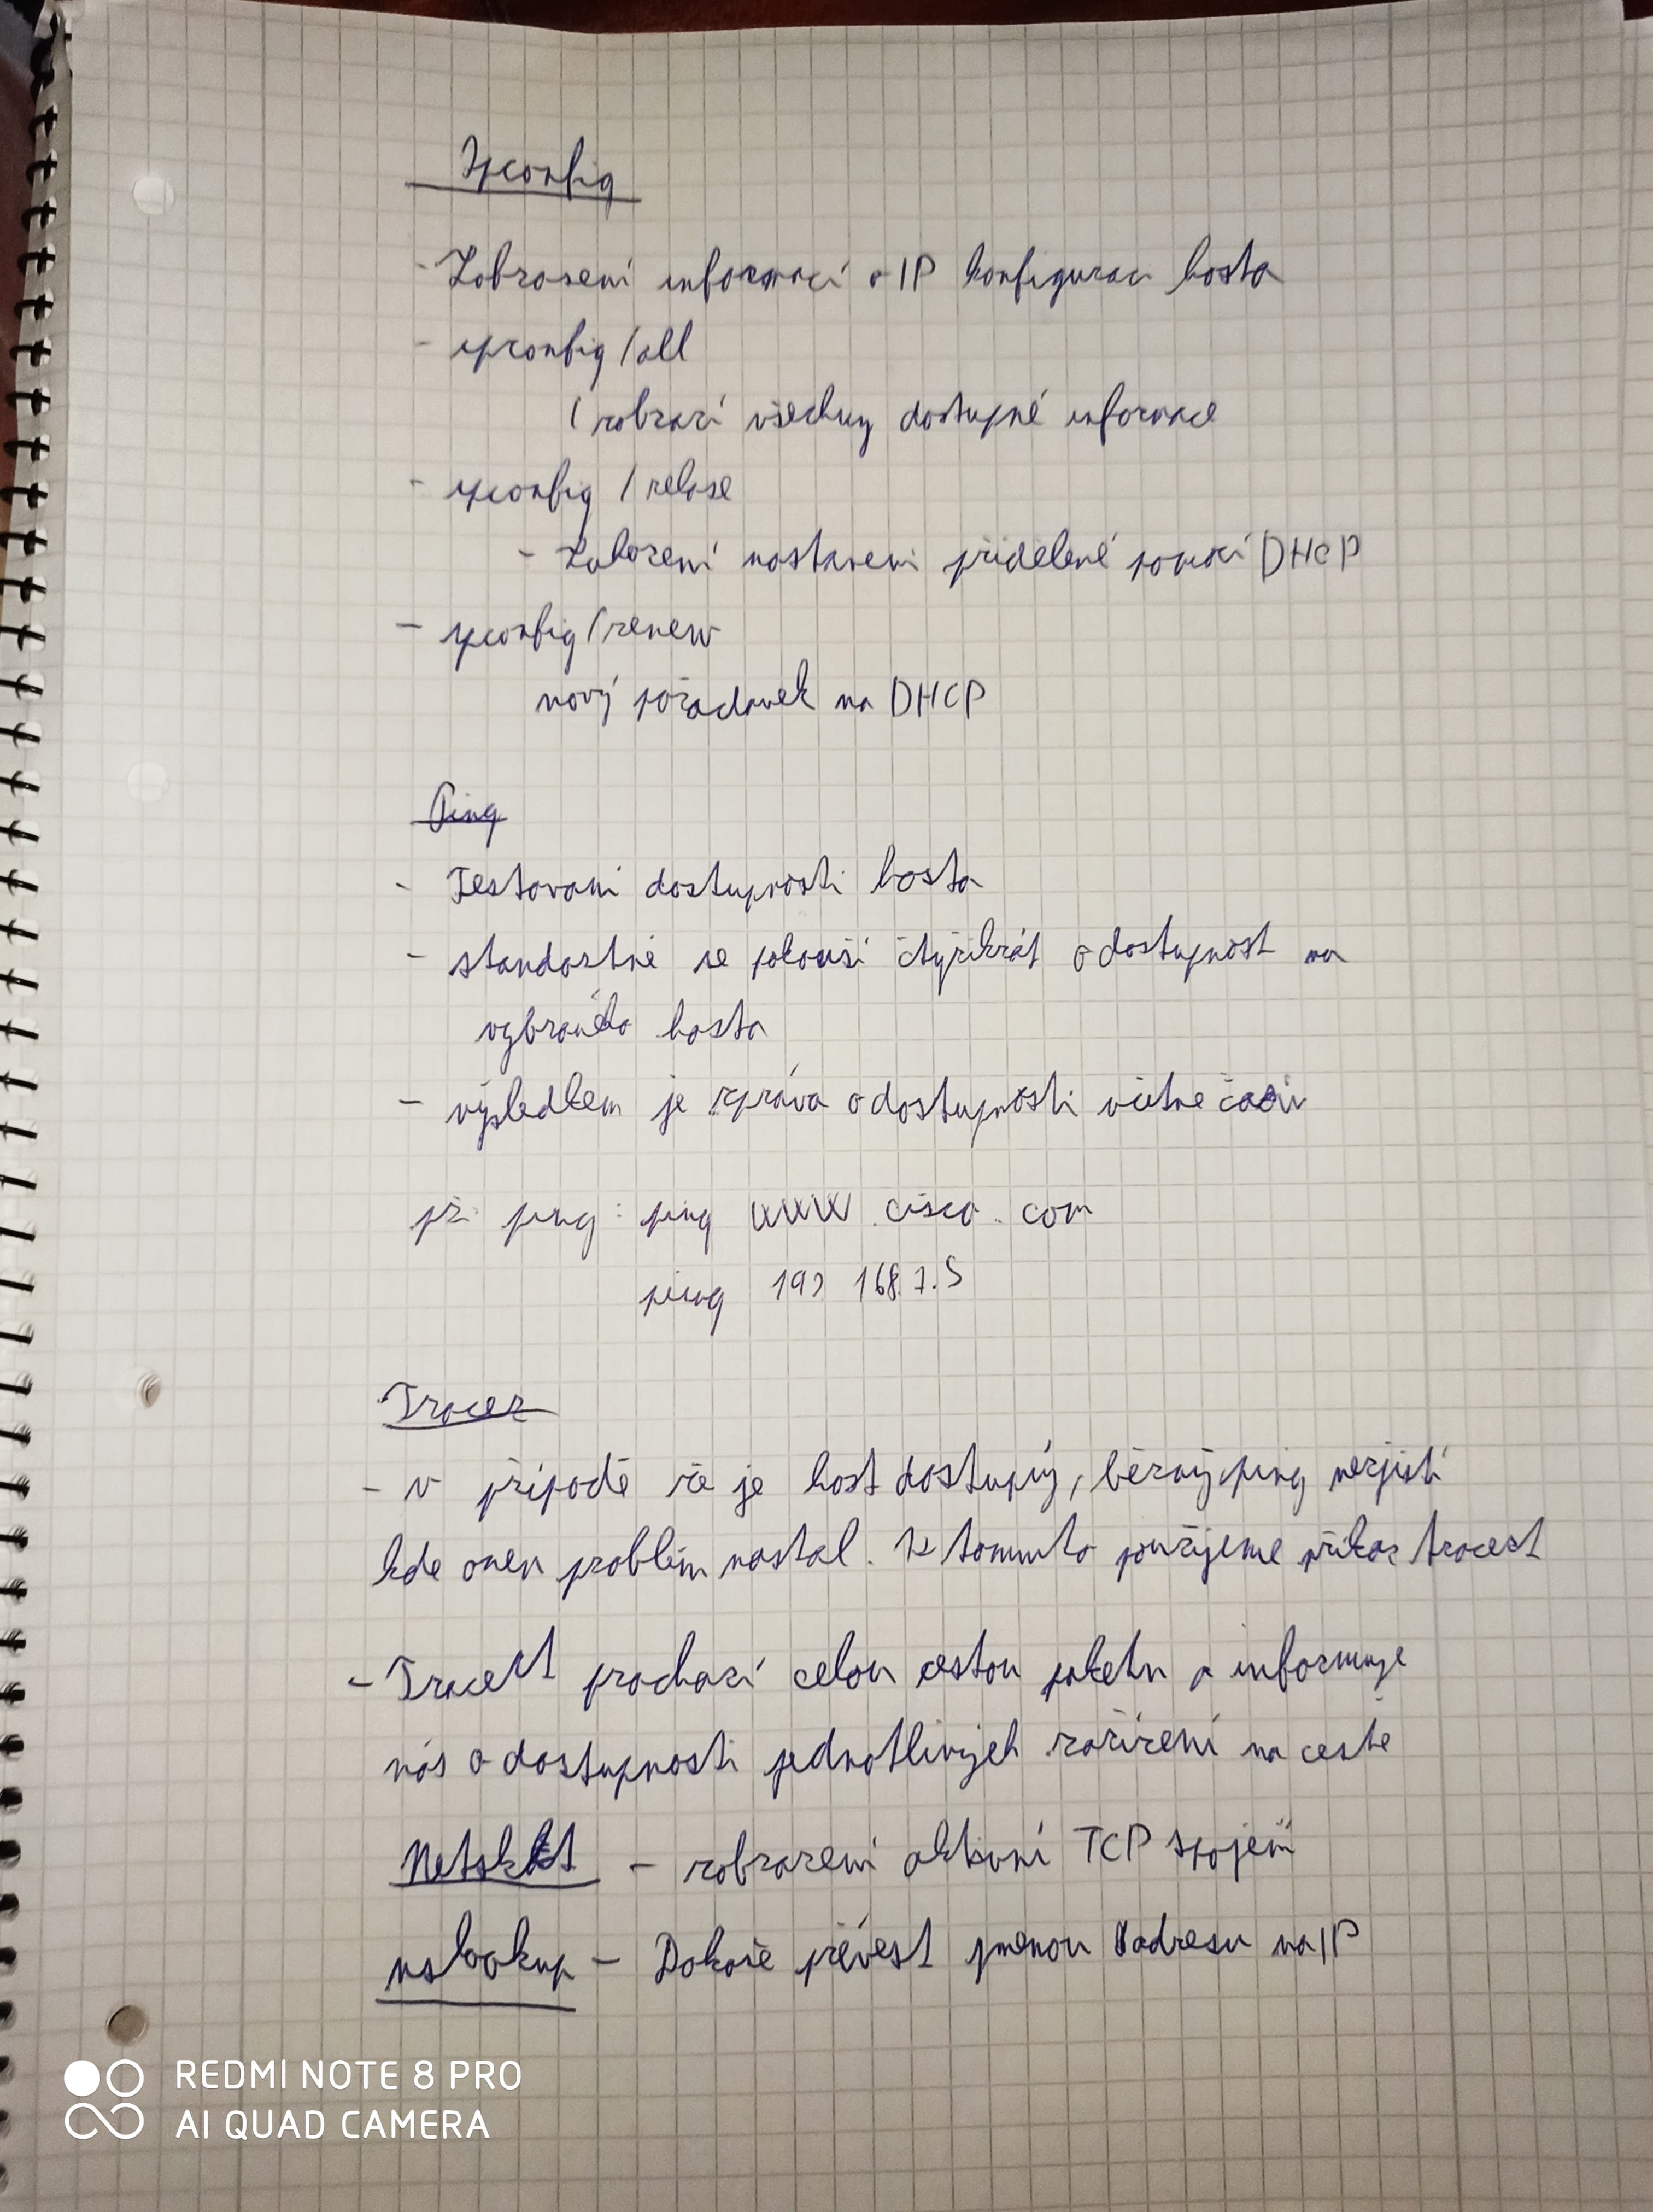 Ipconfig
- Zobrazení informací o IP konfiguraci hosta
- ipconfig /all
( zobrazí všechny dostupné informace
- ipconfig /relase
- nastavení přidelené pomocí DHCP
- ipconfig /renew
nový požadavek na DHCP
Ping
- Testovaní dostupnosti hosta
- standartně se pokouší čtyřikrát o dostupnost na
vybraného hosta
- výsledkem je zpráva o dostupnosti včetně časů
př: ping: ping www.cisco.com
ping 192 168.1.5
Tracer
- v případě že je host dostupný, běžný ping nezjistí
kde onen problém nastal. K tomuto použijeme příkaz tracert
- Tracert prochází celou cestou paketu a informuje
nás o dostupnosti jednotlivých zařízení na cestě
Netstat - zobrazení aktivní TCP spojení
nslookup - Dokáže převést jmenou adresu na IP
REDMI NOTE 8 PRO
AI QUAD CAMERA